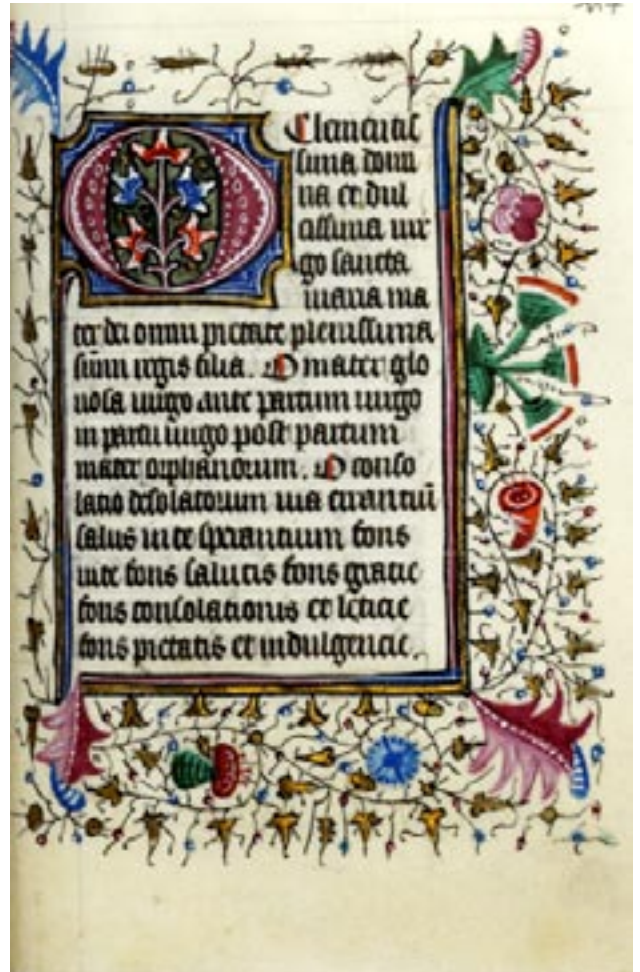 O Clementis
sima domi
na et dul
cissima uir
go sancta
maria ma
ter dei omni pietate plenissima
sūmi regis filia. O mater glo
riosa uirgo ante partum uirgo
in partu uirgo post partum
mater orphanorum. O conso
latio desolatorum uia errantiū
salus in te sperantium fons
uite fons salutis fons gratie
fons consolationis et leticie
fons pietatis et indulgencie.